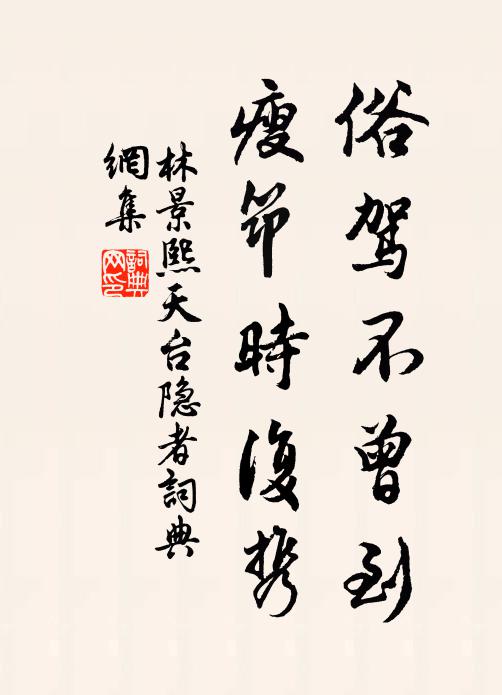 俗駕不曾到
瘦筇時復携
林景熙天台隐者詞典
網集
詞典
网印